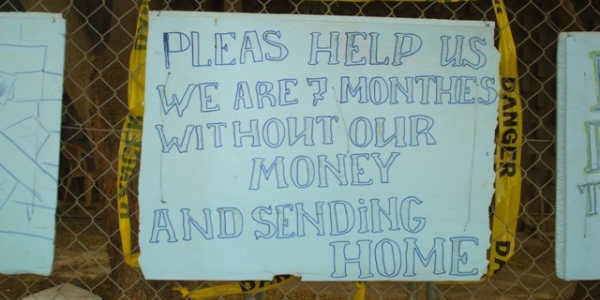 PLEAS HELP US
WE ARE 7 MONTHES
WITHOUT OUR
MONEY
AND SENDiNG
HOME
DANGER